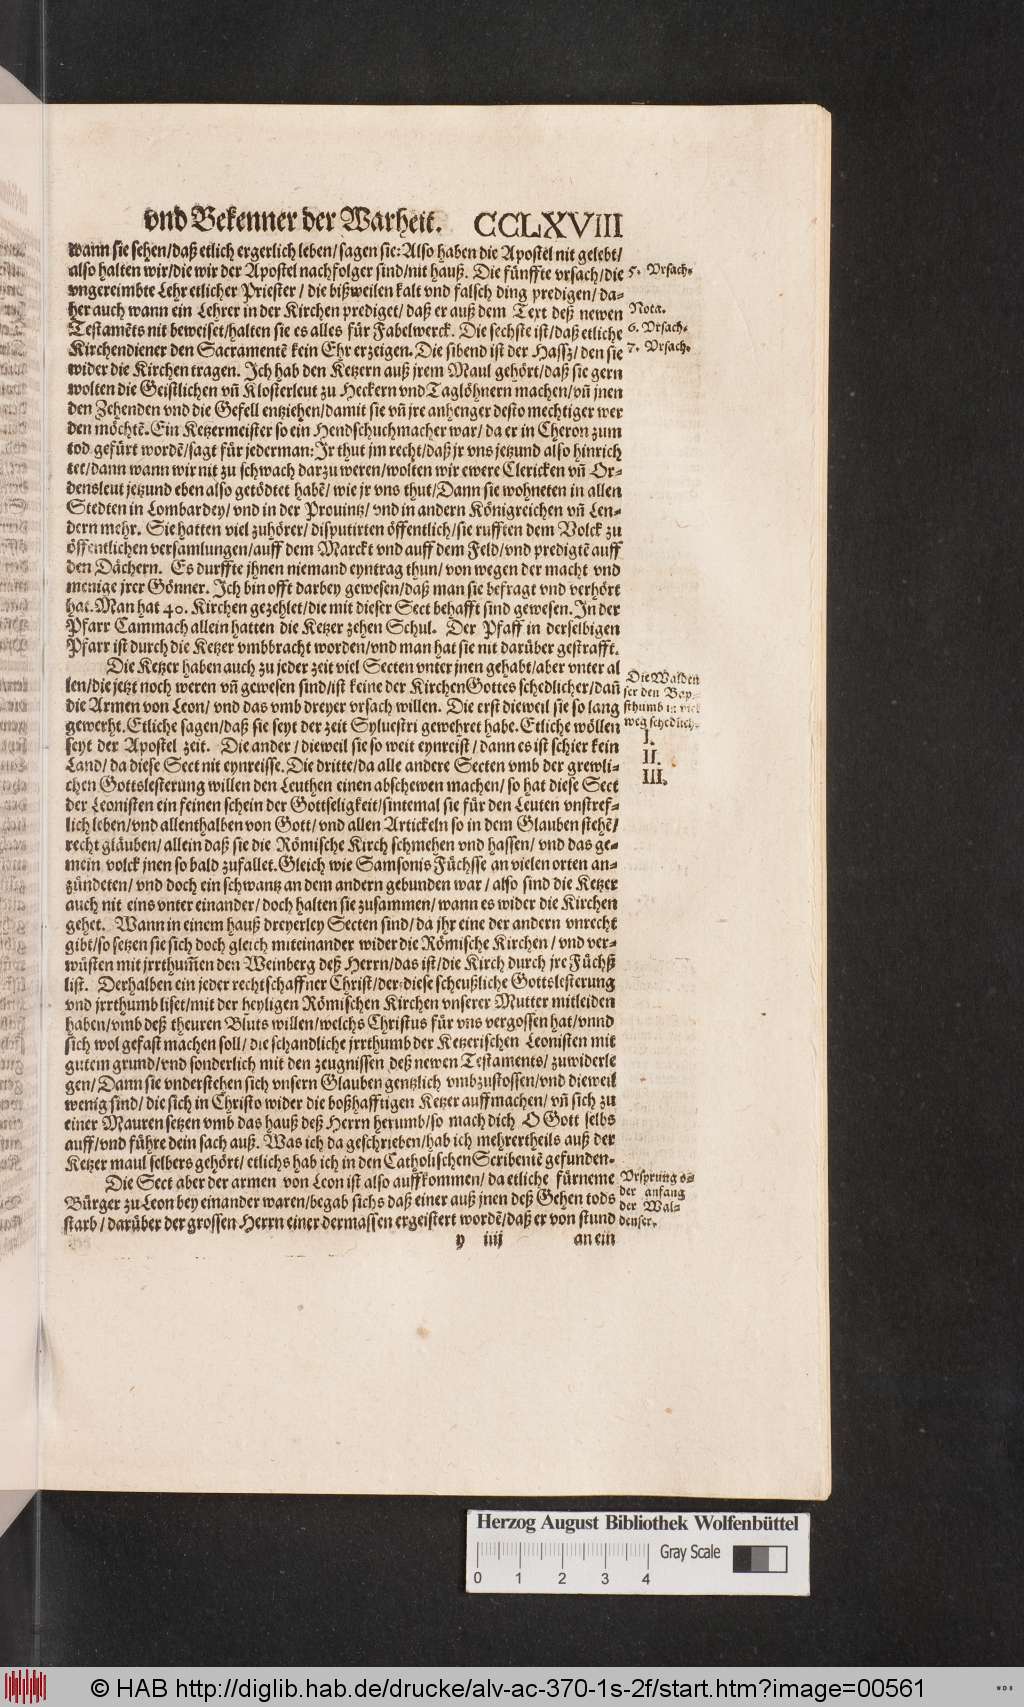 vnd Bekenner der Warheit. CCLXVIII
wann sie sehen/daß etlich ergerlich leben/sagen sie: Also haben die Apostel nit gelebt/
also halten wir/die wir der Apostel nachfolger sind/nit hauß. Die fünffte vrsach/die
5. Vrsach.
vngereimbte Lehr etlicher Priester/ die bißweilen kalt vnd falsch ding predigen/ da-
her auch wann ein Lehrer in der Kirchen prediget/ daß er auß dem Text deß newen
Nota.
Testamẽts nit beweiset/halten sie es alles für Fabelwerck. Die sechste ist/daß etliche
6. Vrsach.
Kirchendiener den Sacramentẽ kein Ehr erzeigen. Die sibend ist der Hassz/ den sie
7. Vrsach.
wider die Kirchen tragen. Ich hab den Ketzern auß jrem Maul gehört/daß sie gern
wolten die Geistlichen vñ Klosterleut zu Heckern vnd Taglöhnern machen/vñ jnen
den Zehenden vnd die Gefell entziehen/damit sie vñ jre anhenger desto mechtiger wer
den möchtẽ. Ein Ketzermeister so ein Hendschuchmacher war/ da er in Cheron zum
tod gefürt wordẽ/sagt für jederman: Jr thut jm recht/daß jr vns jetzund also hinrich
tet/dann wann wir nit zu schwach darzu weren/wolten wir ewere Clericken vñ Or-
densleut jetzund eben also getödtet habẽ/ wie jr vns thut/Dann sie wohneten in allen
Stedten in Lombardey/ vnd in der Prouintz/ vnd in andern Königreichen vñ Len-
dern mehr. Sie hatten viel zuhörer/ disputirten öffentlich/sie rufften dem Volck zu
öffentlichen versamlungen/auff dem Marckt vnd auff dem Feld/vnd predigtẽ auff
den Dächern. Es durffte jhnen niemand eyntrag thun/ von wegen der macht vnd
menige jrer Gönner. Ich bin offt darbey gewesen/daß man sie befragt vnd verhört
hat. Man hat 40. Kirchen gezehlet/die mit dieser Sect behafft sind gewesen. In der
Pfarr Cammach allein hatten die Ketzer zehen Schul. Der Pfaff in derselbigen
Pfarr ist durch die Ketzer vmbbracht worden/vnd man hat sie nit darüber gestrafft.
Die Ketzer haben auch zu jeder zeit viel Secten vnter jnen gehabt/aber vnter al
len/die jetzt noch weren vñ gewesen sind/ist keine der Kirchen Gottes schedlicher/dañ
die Armen von Leon/ vnd das vmb dreyer vrsach willen. Die erst dieweil sie so lang
gewerht. Etliche sagen/daß sie seyt der zeit Syluestri gewehret habe. Etliche wöllen
seyt der Apostel zeit. Die ander/ dieweil sie so weit eynreist/ dann es ist schier kein
Land/ da diese Sect nit eynreisse. Die dritte/da alle andere Secten vmb der grewli-
chen Gottslesterung willen den Leuthen einen abschewen machen/ so hat diese Sect
der Leonisten ein feinen schein der Gottseligkeit/sintemal sie für den Leuten vnstref-
lich leben/vnd allenthalben von Gott/ vnd allen Artickeln so in dem Glauben stehẽ/
recht gläuben/ allein daß sie die Römische Kirch schmehen vnd hassen/ vnd das ge-
mein volck jnen so bald zufallet. Gleich wie Samsonis Füchsse an vielen orten an-
zündeten/ vnd doch ein schwantz an dem andern gebunden war/ also sind die Ketzer
auch nit eins vnter einander/ doch halten sie zusammen/ wann es wider die Kirchen
gehet. Wann in einem hauß dreyerley Secten sind/ da jhr eine der andern vnrecht
gibt/so setzen sie sich doch gleich miteinander wider die Römische Kirchen/ vnd ver-
wüsten mit jrrthum̃en den Weinberg deß Herrn/das ist/die Kirch durch jre Füchß
list. Derhalben ein jeder rechtschaffner Christ/der diese scheußliche Gottslesterung
vnd jrrthumb liset/mit der heyligen Römischen Kirchen vnserer Mutter mitleiden
haben/vmb deß theuren Bluts willen/welchs Christus für vns vergossen hat/vnnd
sich wol gefast machen soll/ die schandliche jrrthumb der Ketzerischen Leonisten mit
gutem grund/vnd sonderlich mit den zeugnissen deß newen Testaments/ zuwiderle
gen/ Dann sie vnderstehen sich vnsern Glauben gentzlich vmbzustossen/vnd dieweil
wenig sind/ die sich in Christo wider die boßhafftigen Ketzer auffmachen/ vñ sich zu
einer Mauren setzen vmb das hauß deß Herrn herumb/so mach dich O Gott selbs
auff/vnd führe dein sach auß. Was ich da geschrieben/hab ich mehrertheils auß der
Ketzer maul selbers gehört/ etlichs hab ich in den Catholischen Scribentẽ gefunden.
Die Walden
ser den Bap-
sthumb in viel
weg schedlich.
I.
II.
III.
Die Sect aber der armen von Leon ist also auffkommen/ da etliche fürneme
Bürger zu Leon bey einander waren/begab sichs daß einer auß jnen deß Gehen tods
starb/ darüber der grossen Herrn einer dermassen ergeistert wordẽ/daß er von stund
Vrsprung o-
der anfang
der Wal-
denser.
y iiij an ein
Herzog August Bibliothek Wolfenbüttel
Gray Scale
0 1 2 3 4
© HAB http://diglib.hab.de/drucke/alv-ac-370-1s-2f/start.htm?image=00561